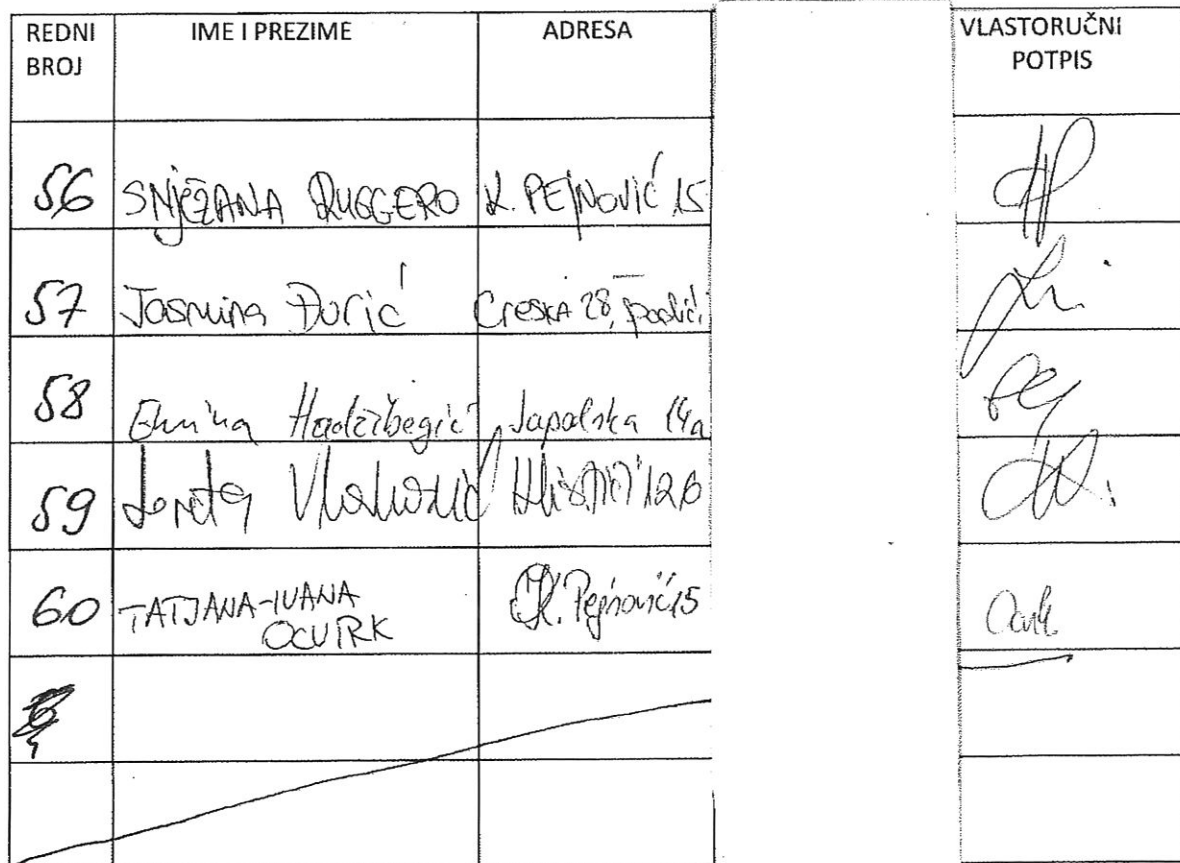 REDNI BROJ IME I PREZIME ADRESA VLASTORUČNI POTPIS
56 SNJEŽANA RUGGERO K. PEJNOVIĆ 15
57 Jasmina Đurić Creska 28,
58 Emina Hadžibegić Japodska 14a
59 Loreta
60 TATJANA-IVANA OCVIRK K. Pejnović 15